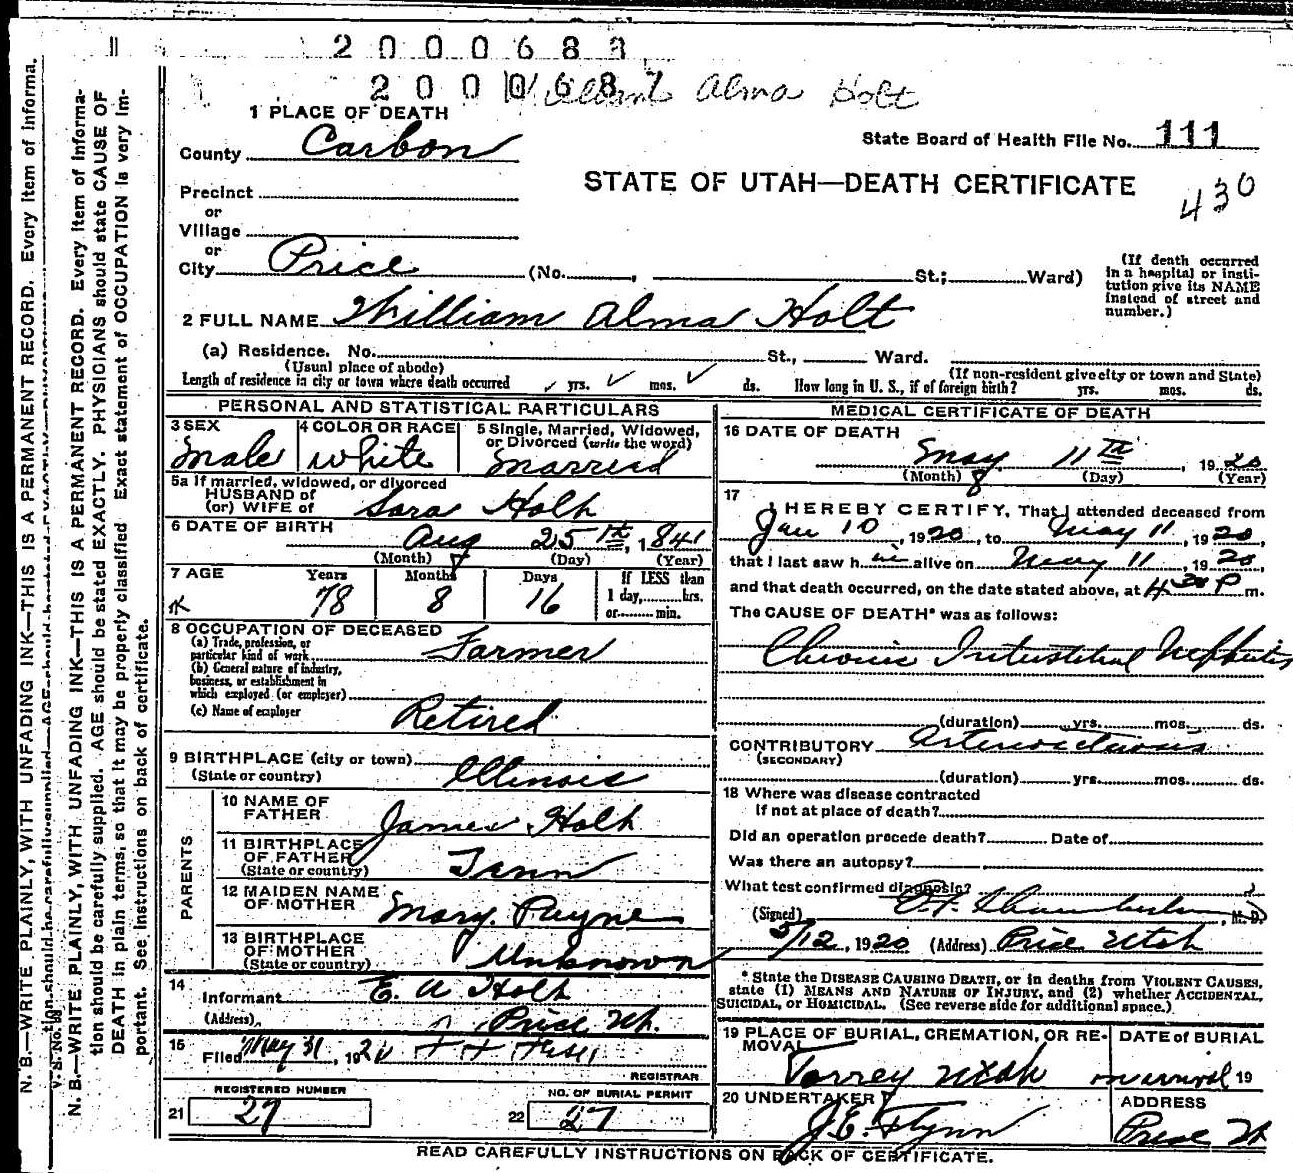 2000683
200068
Alma Holt
1 PLACE OF DEATH
County Carbon
State Board of Health File No. 111
STATE OF UTAH—DEATH CERTIFICATE
430
Precinct
or
Village
or
City Price (No. , St.; Ward)
(If death occurred in a hospital or institution give its NAME instead of street and number.)
2 FULL NAME William Alma Holt
(a) Residence. No. St., Ward.
(Usual place of abode) (If non-resident give city or town and State)
Length of residence in city or town where death occurred yrs. mos. ds. How long in U. S., if of foreign birth? yrs. mos. ds.
PERSONAL AND STATISTICAL PARTICULARS
3 SEX Male
4 COLOR OR RACE White
5 Single, Married, Widowed, or Divorced (write the word) Married
5a If married, widowed, or divorced
HUSBAND of
(or) WIFE of Sara Holt
6 DATE OF BIRTH Aug 8 25th, 1841
(Month) (Day) (Year)
7 AGE Years 78 Months 8 Days 16 If LESS than 1 day, hrs. or min.
8 OCCUPATION OF DECEASED
(a) Trade, profession, or particular kind of work Farmer
(b) General nature of industry, business, or establishment in which employed (or employer)
(c) Name of employer Retired
9 BIRTHPLACE (city or town)
(State or country) Illinois
PARENTS
10 NAME OF FATHER James Holt
11 BIRTHPLACE OF FATHER (State or country) Tenn
12 MAIDEN NAME OF MOTHER Mary Payne
13 BIRTHPLACE OF MOTHER (State or country) Unknown
14 Informant E. A Holt
(Address) Price Ut.
15 Filed May 31, 1920
REGISTRAR
REGISTERED NUMBER
21 27
NO. OF BURIAL PERMIT
22 27
MEDICAL CERTIFICATE OF DEATH
16 DATE OF DEATH
May 8 11th, 1920
(Month) (Day) (Year)
17 I HEREBY CERTIFY, That I attended deceased from
Jan 10, 1920, to May 11, 1920,
that I last saw h im alive on May 11, 1920,
and that death occurred, on the date stated above, at 4 30 P m.
The CAUSE OF DEATH* was as follows:
Chronic Interstitial Nephritis
(duration) yrs. mos. ds.
CONTRIBUTORY Arteriosclerosis
(SECONDARY)
(duration) yrs. mos. ds.
18 Where was disease contracted
if not at place of death?
Did an operation precede death? Date of
Was there an autopsy?
What test confirmed diagnosis?
(Signed) , M. D.
5/12, 1920 (Address) Price Utah
* State the DISEASE CAUSING DEATH, or in deaths from VIOLENT CAUSES, state (1) MEANS AND NATURE OF INJURY, and (2) whether ACCIDENTAL, SUICIDAL, or HOMICIDAL. (See reverse side for additional space.)
19 PLACE OF BURIAL, CREMATION, OR REMOVAL Torrey Utah
DATE of BURIAL on arrival 19
20 UNDERTAKER J. E. Flynn
ADDRESS Price Ut
READ CAREFULLY INSTRUCTIONS ON BACK OF CERTIFICATE.
N. B.—WRITE PLAINLY, WITH UNFADING INK—THIS IS A PERMANENT RECORD. Every item of informa-
V. S. No. 98
N. B.—WRITE PLAINLY, WITH UNFADING INK—THIS IS A PERMANENT RECORD. Every item of informa-
tion should be carefully supplied. AGE should be stated EXACTLY. PHYSICIANS should state CAUSE OF
DEATH in plain terms, so that it may be properly classified. Exact statement of OCCUPATION is very im-
portant. See instructions on back of certificate.